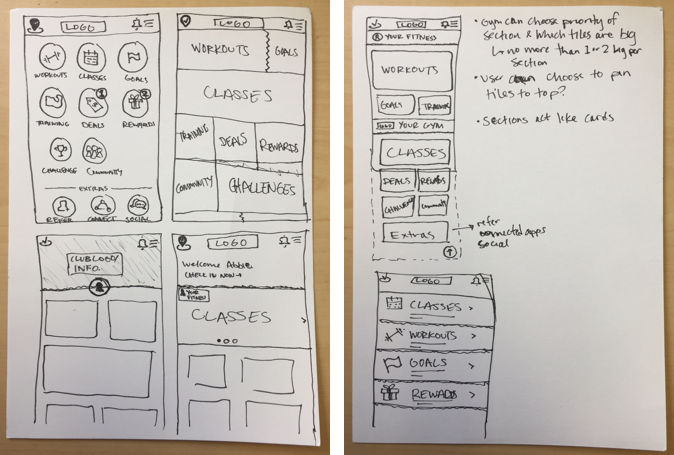 LOGO
WORKOUTS
CLASSES
GOALS
TRAINING
DEALS
1
REWARDS
2
CHALLENGE
COMMUNITY
EXTRAS
REFER
CONNECT
SOCIAL
LOGO
WORKOUTS
GOALS
CLASSES
TRAINING
DEALS
REWARDS
COMMUNITY
CHALLENGES
CLUB LOGO/
INFO.
LOGO
Welcome Abbie
CHECK IN NOW→
YOUR
FITNESS
CLASSES
LOGO
YOUR FITNESS
WORKOUTS
GOALS
TRAINING
LOGO YOUR GYM
CLASSES
DEALS
REWARDS
CHALLENGE
Community
Extras
→ refer
connected apps
social
• Gym can choose priority of
section & which tiles are big
↳ no more than 1 or 2 big per
section
• User can choose to pin
tiles to top?
• Sections act like cards
LOGO
CLASSES >
WORKOUTS >
GOALS >
REWARDS >